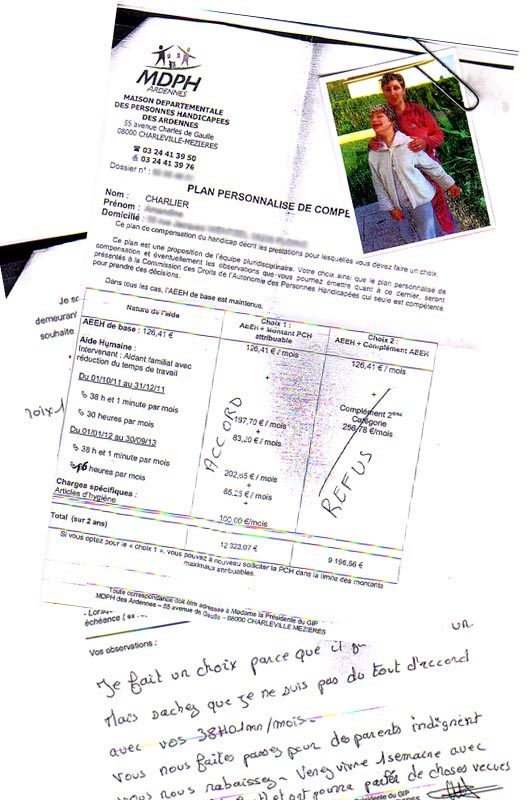 MDPH
ARDENNES
MAISON DEPARTEMENTALE
DES PERSONNES HANDICAPEES
DES ARDENNES
55 avenue Charles de Gaulle
08000 CHARLEVILLE-MEZIERES
03 24 41 39 50
03 24 41 39 76
Dossier n° :
PLAN PERSONNALISE DE COMPE
Nom : CHARLIER
Prénom :
Domicilié :
Ce plan de compensation du handicap décrit les prestations pour lesquelles vous devez faire un choix.
Ce plan est une proposition de l'équipe pluridisciplinaire. Votre choix ainsi que le plan personnalisé de
compensation et éventuellement les observations que vous pourriez émettre quant à ce dernier, seront
présentés à la Commission des Droits de l'Autonomie des Personnes Handicapées qui seule est compétente
pour prendre des décisions.
Dans tous les cas, l'AEEH de base est maintenue.
Nature de l'aide
Choix 1 :
AEEH + Montant PCH
attribuable
Choix 2 :
AEEH + Complément AEEH
AEEH de base : 126,41 €
126,41 € / mois
126,41 € / mois
Aide Humaine :
Intervenant : Aidant familial avec
réduction du temps de travail
+
+
Complément 2ème
Catégorie
256,78 €/mois
Du 01/10/11 au 31/12/11
38 h et 1 minute par mois
197,70 € / mois
+
30 heures par mois
83,20 € / mois
Du 01/01/12 au 30/09/13
38 h et 1 minute par mois
202,65 € / mois
+
heures par mois
€ / mois
+
Charges spécifiques :
Articles d'hygiène
100,00 €/mois
ACCORD
REFUS
Total (sur 2 ans)
12 323,07 €
9 195,56 €
Si vous optez pour le « choix 1 », vous pouvez à nouveau solliciter la PCH dans la limite des montants
maximaux attribuables.
Toute correspondance doit être adressée à Madame la Présidente du GIP
MDPH des Ardennes – 55 avenue de Gaulle - 08000 CHARLEVILLE MEZIERES
Je so
demeurant
souhaite
échéance ( ex :
Vos observations :
Je fait un choix parce que il
Mais sachez que je ne suis pas du tout d'accord
avec vos 38H01mn/mois.
Vous nous faites passez pour des parents indignent
vous nous rabaissez. Venez vivre 1 semaine avec
et ont pourra parler de choses vecues
Présidente du GIP
MEZIERES